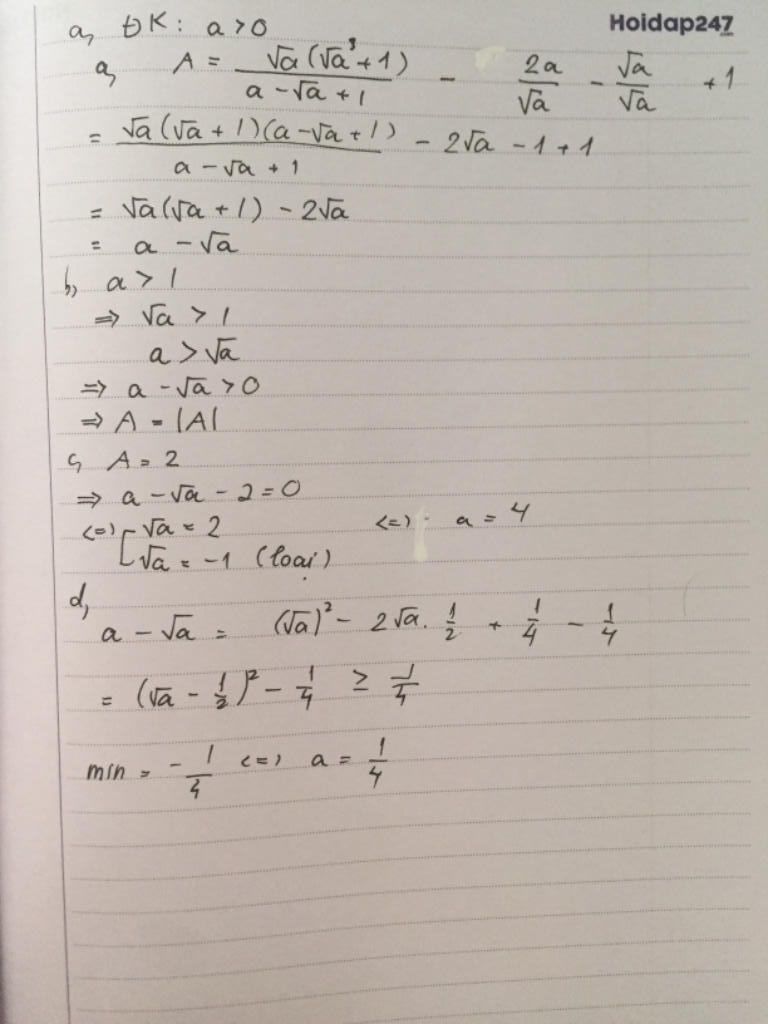 Hoidap247
.com
a, ĐK: a > 0
a, A = √a(√a³ + 1) / (a - √a + 1) - 2a/√a - √a/√a + 1
= √a(√a + 1)(a - √a + 1) / (a - √a + 1) - 2√a - 1 + 1
= √a(√a + 1) - 2√a
= a - √a
b, a > 1
⇒ √a > 1
a > √a
⇒ a - √a > 0
⇒ A = |A|
c, A = 2
⇒ a - √a - 2 = 0
<=> [ √a = 2 <=> a = 4
√a = -1 (loại)
d,
a - √a = (√a)² - 2√a. 1/2 + 1/4 - 1/4
= (√a - 1/2)² - 1/4 ≥ -1/4
min = - 1/4 <=> a = 1/4